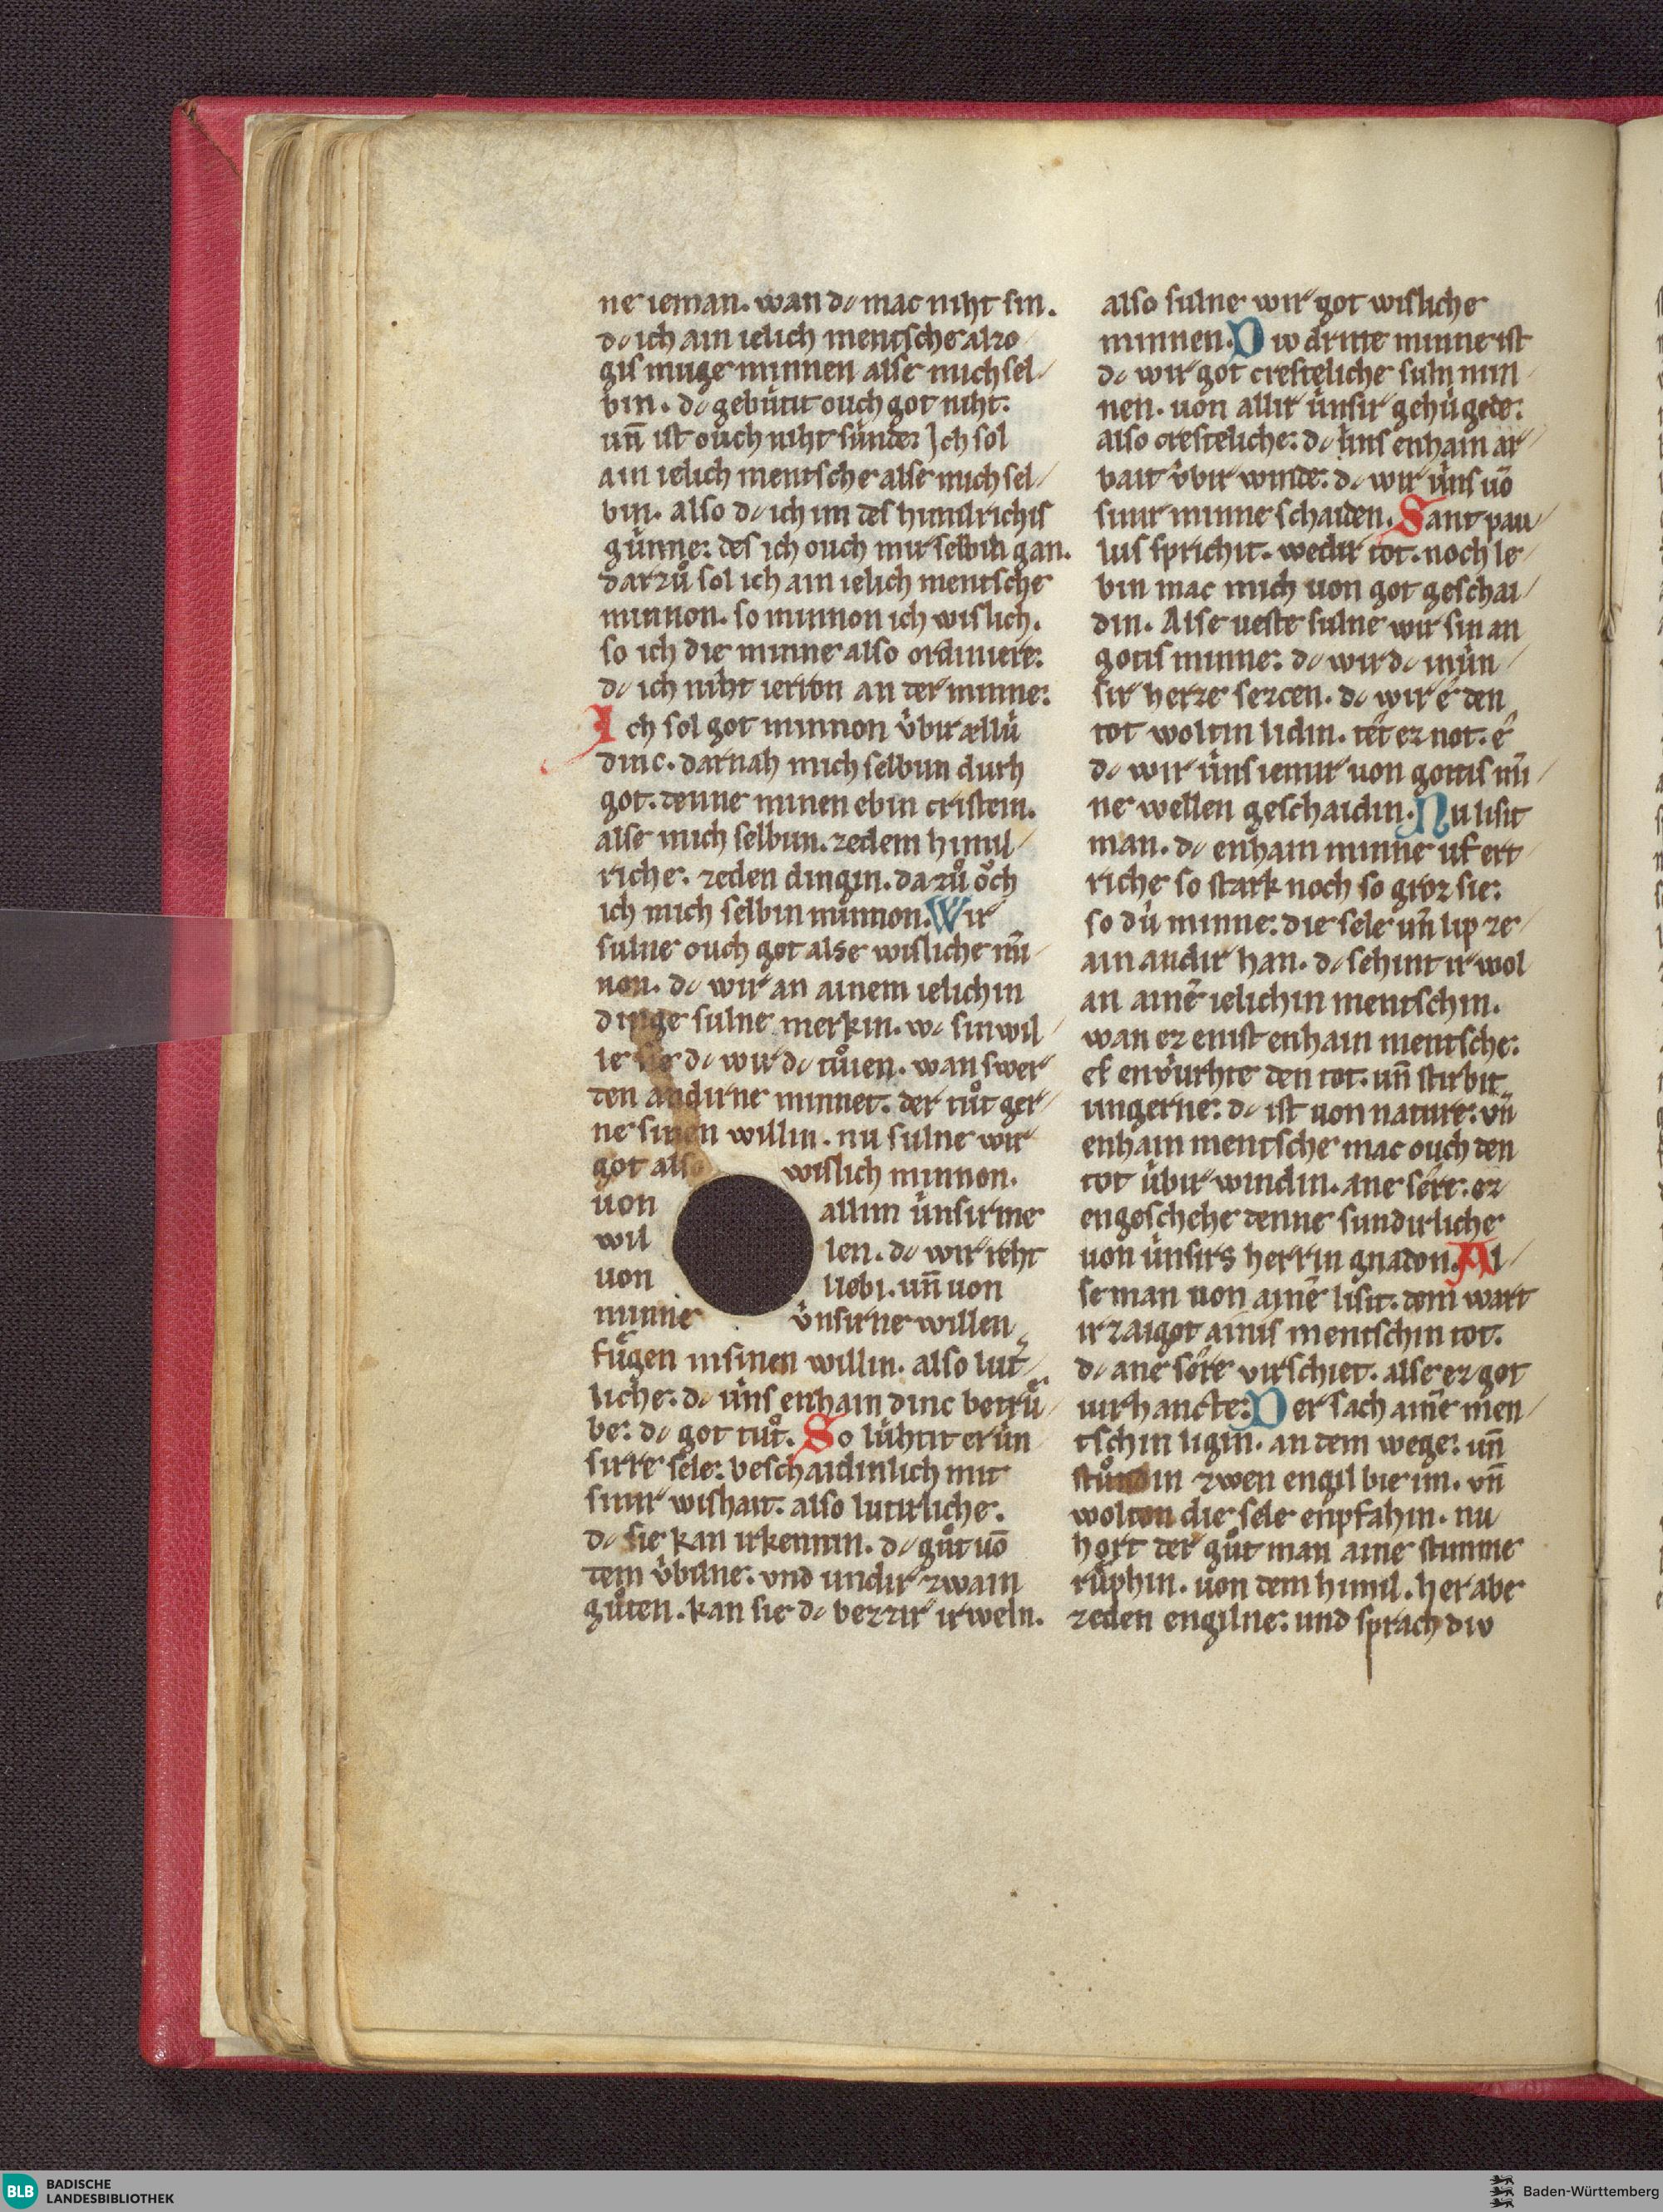 ne ieman. wan dc mac niht sin.
dc ich ain ielich mentsche alzo
gis muge minnen alse mich sel
bin. dc gebu̍tit ouch got niht:
un̄ ist ouch niht sünde: Ich sol
ain ielich mentsche alse mich sel
bin. also dc ich im des himilrichis
gu̍nne: des ich ouch mir selbin gan.
darzuͦ sol ich ain ielich mentsche
minnon. so minnon ich wislich.
so ich die minne also ordiniere:
dc ich niht ierron an der minne:
Ich sol got minnon v̍bir ællu̍
dinc. darnah mich selbun durh
got. denne minen ebin cristein.
alse mich selbun. zedem himil
riche. zeden dingin. da zuͦ oͮch
ich mich selbin minnon. Wir
sulne ouch got alse wisliche mī
non. dc wir an ainem ielichin
dinge sulne merkin. wc sin wil
le sie dc wir dc tuͦien. wan swer
den andirne minnet. der tuͦt ger
ne sinen willin. nu sulne wir
got also wislich minnon.
von allim u̍nsirme
wil len. dc wir reht
von liebi. un̄ von
minne v̍nsirne willen
fuͤgen in sinen willin. also lut
liche: dc u̍ns enhain dinc betruͤ
be: dc got tuͦt. So lu̍htit er u̍n
sirre sele: beschaidinlich mit
sinir wishait. also lutirliche.
dc sie kan irkennin. dc guͦt uō
dem v̍bilne: vnd undir zwain
guͦten. kan sie dc bezzir irweln.
also sulne wir got wisliche
minnen. Diu dritte minne ist
dc wir got crefteliche suln min
nen. uon allir u̍nsir gehu̍gede:
also crefteliche: dc u̍ns enhain ar
bait v̍bir winde: dc wir u̍ns uō
sinir minne schaiden. Sant pau
lus sprichit. wedir tot: noch le
bin mac mich uon got geschai
din. Alse ueste sulne wir sin an
gotis minne: dc wir dc in u̍n
sir herze sezcen. dc wir ê den
tot woltin lidin. tet ez not: ê
dc wir u̍ns iemir uon gottis mī
ne wellen geschaidin. Nu lisit
man. dc enhain minne uf ert
riche so stark noch so groz sie:
so du̍ minne: die sele un̄ lip ze
ain andir han. dc sehint ir wol
an ainē ielichin mentschin.
wan ez enist enhain mentsche:
ef env̍rhte den tot. un̄ stirbit
ungerne: dc ist uon nature: vn̄
enhain mentsche mac ouch den
tot u̍bir windin. ane sêre: ez
engeschehe denne sundirliche
uon u̍nsirs herrin gnadon. Al
se man uon ainē lisit: dem wart
irzaigot ainis mentschin tot.
dc ane sêre virschiet. alse ez got
virhancte: Der sach ainē men
tschin ligin. an dem wege: un̄
stuͦndin zwen engil bie im. vn̄
wolton die sele enpfahin. nu
hort der guͦt man aine stimme
ruͤphin. uon dem himil. her abe
zeden engilne: und sprach diu
BLB BADISCHE
LANDESBIBLIOTHEK
Baden-Württemberg